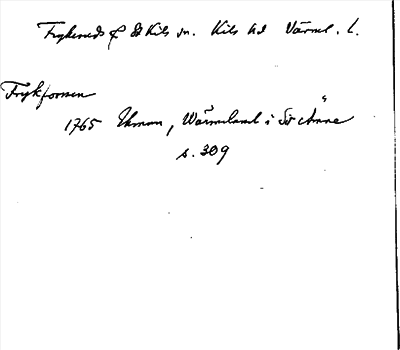 Frykerud & St Kils sn. Kils hd Värml. l.
Frykforsen
1765 Ekman, Wärmeland i Sit Ämne
s. 309